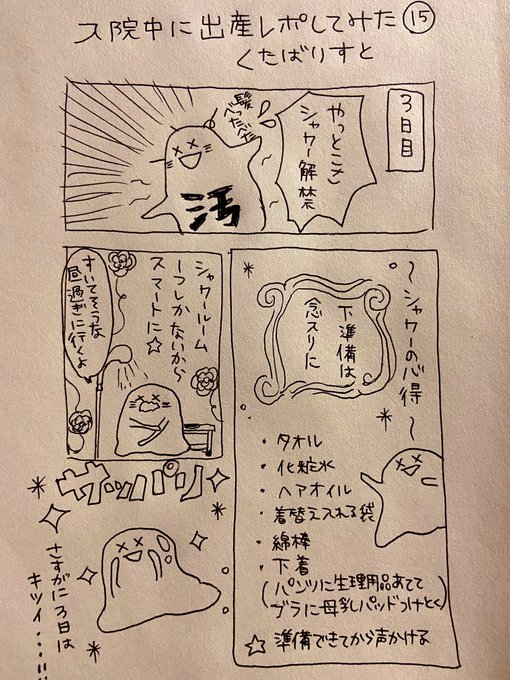 入院中に出産レポしてみた⑮
くたばりすと
3日目
やっとこさ
シャワー解禁
髪
べったべた
汚
～シャワーの心得～
下準備は
念入りに
・タオル
・化粧水
・ヘアオイル
・着替え入れる袋
・綿棒
・下着
(パンツに生理用品あてて
ブラに母乳パッドつけとく)
☆準備できてから声かける
シャワールーム
一つしかないから
スマートに☆
すいてそうな
昼過ぎに行くよ
サッパリ
さすがに3日は
キツイ・・・!!